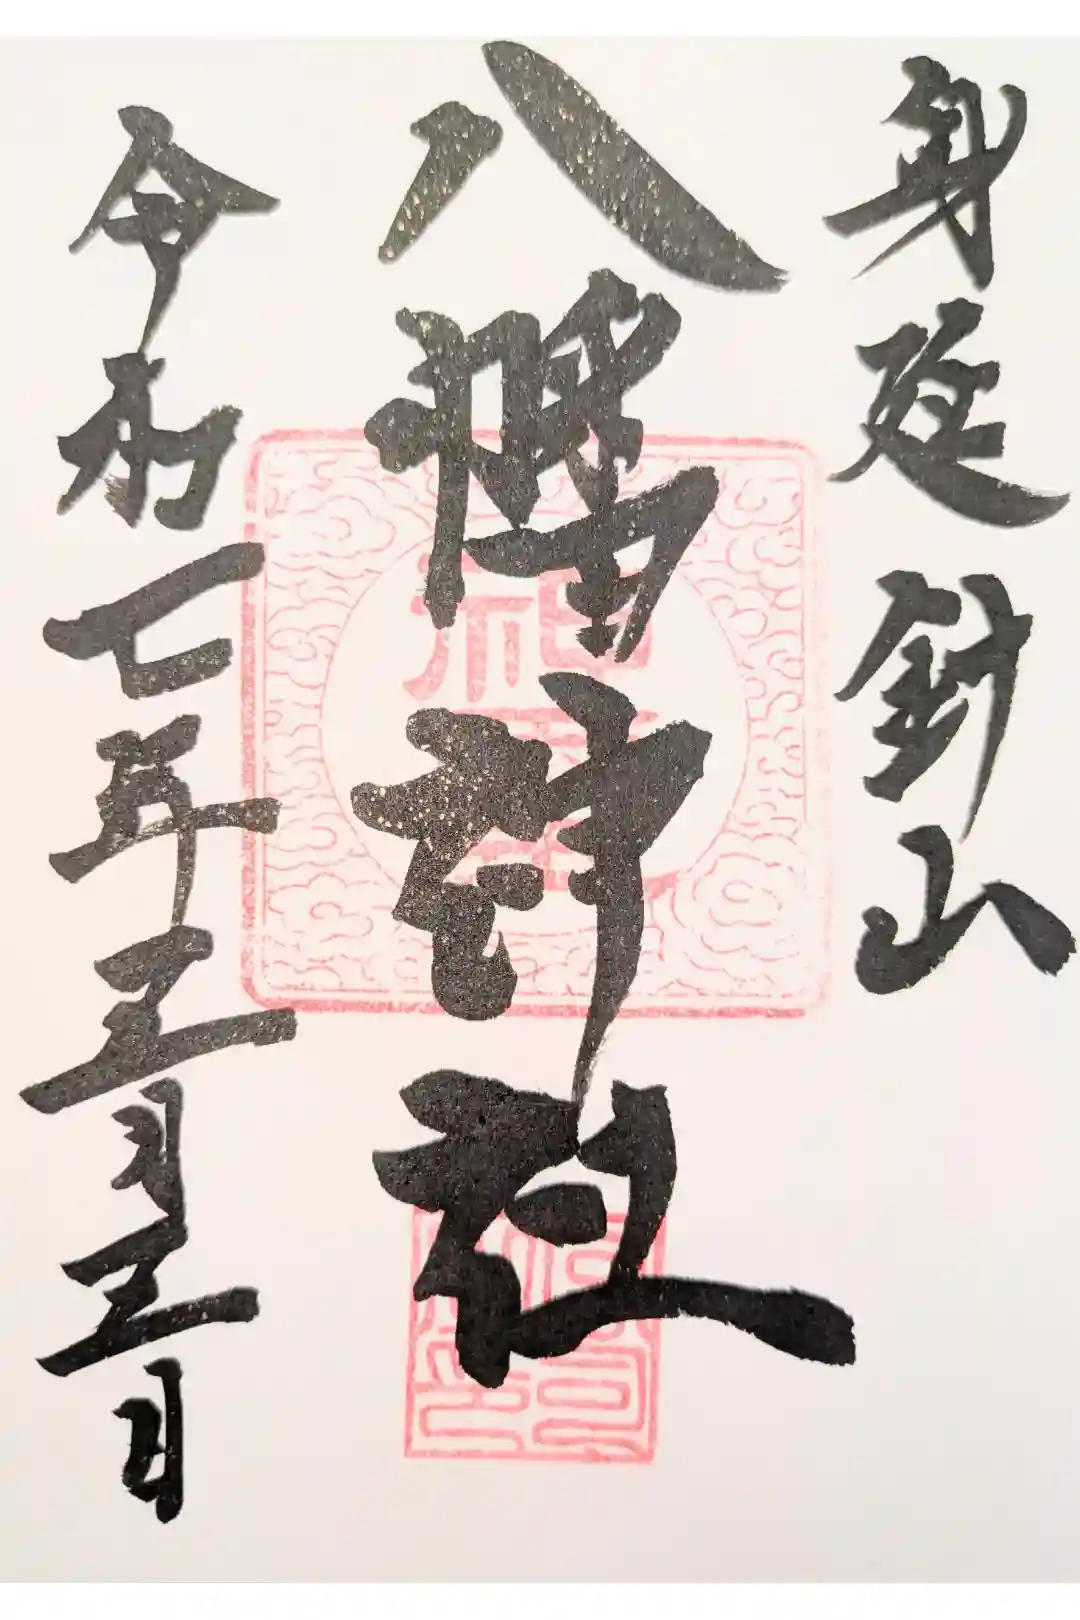 身延 針山
八幡神社
令和七年五月五日